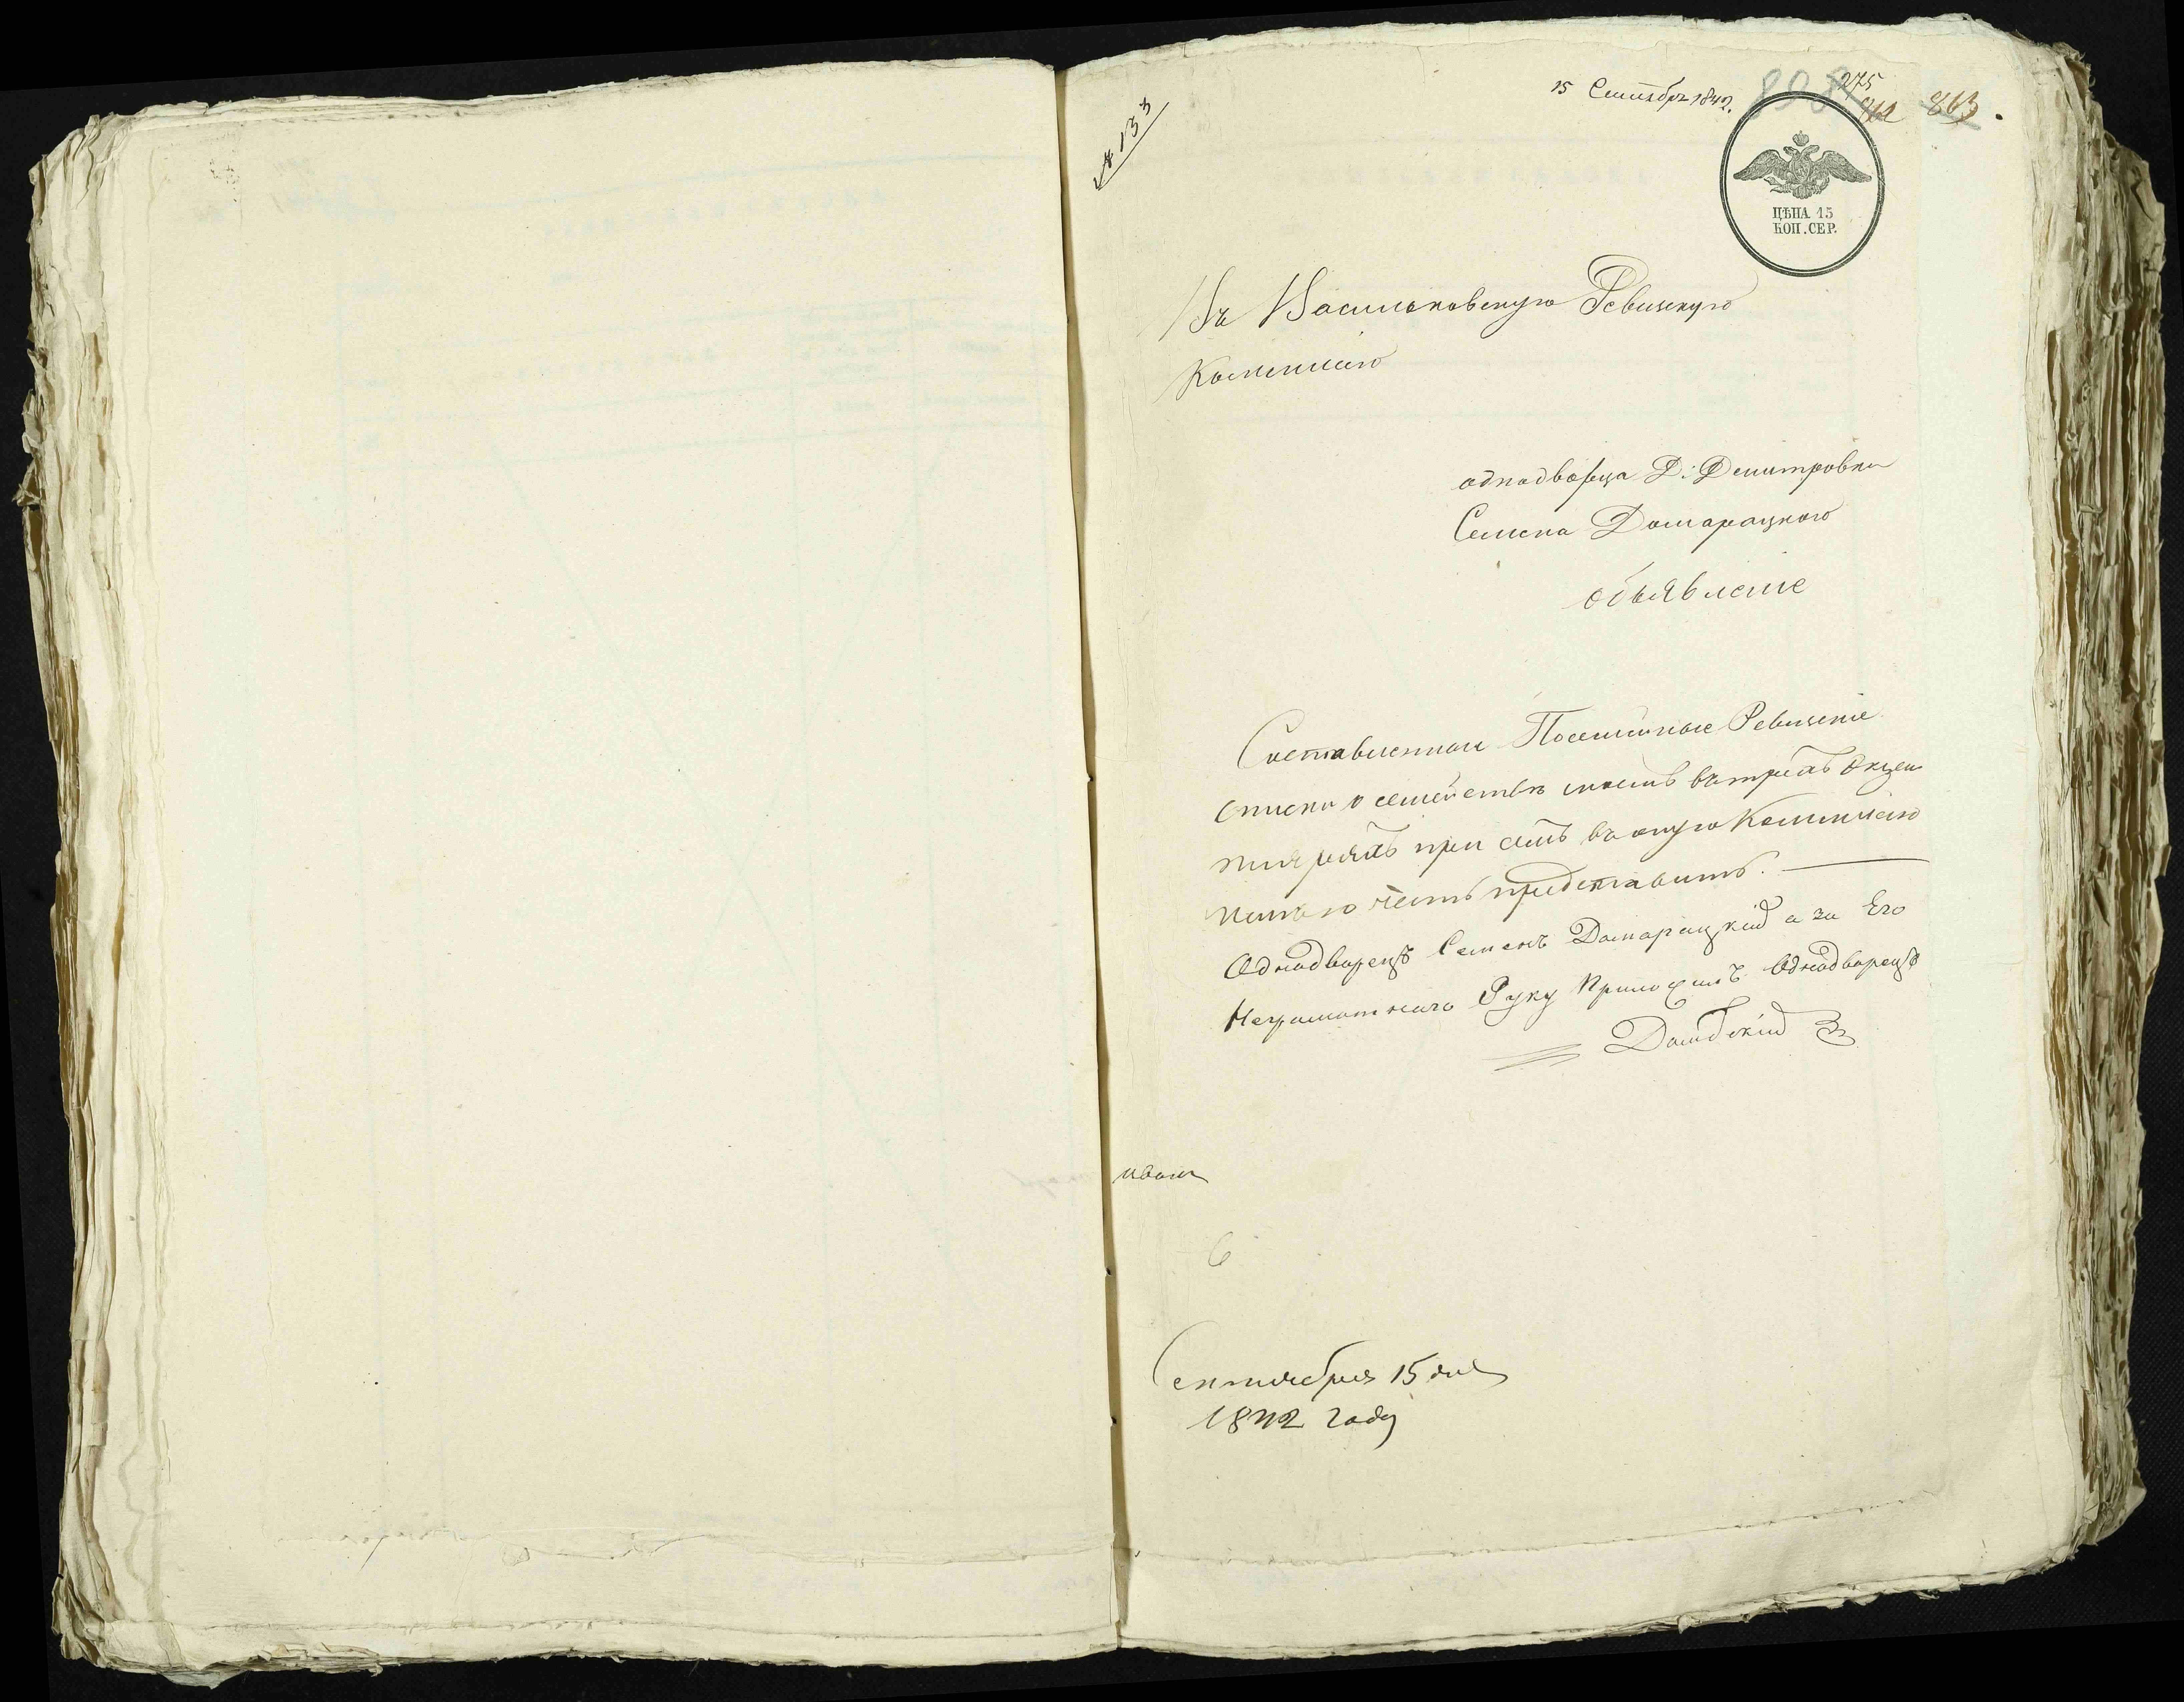 № 133
15 Сентябр 1842.
275
863.
ЦѢНА 15
КОП. СЕР.
Въ Васильковскую Ревизскую
Коммисію
однодворца Д: Дмитровки
Семена Домарацкого
объявленіе
Составленные Посемейные Ревизскіе
списки о семействѣ моемъ въ трехъ Экзем
плярахъ при семъ въ оную Коммисію
имѣю честь представить.
Однодворецъ Семенъ Домарацкій а за Его
Неграмотнаго Руку Приложилъ Однодворецъ
Домбскій
Сентября 15 дня
1842 году